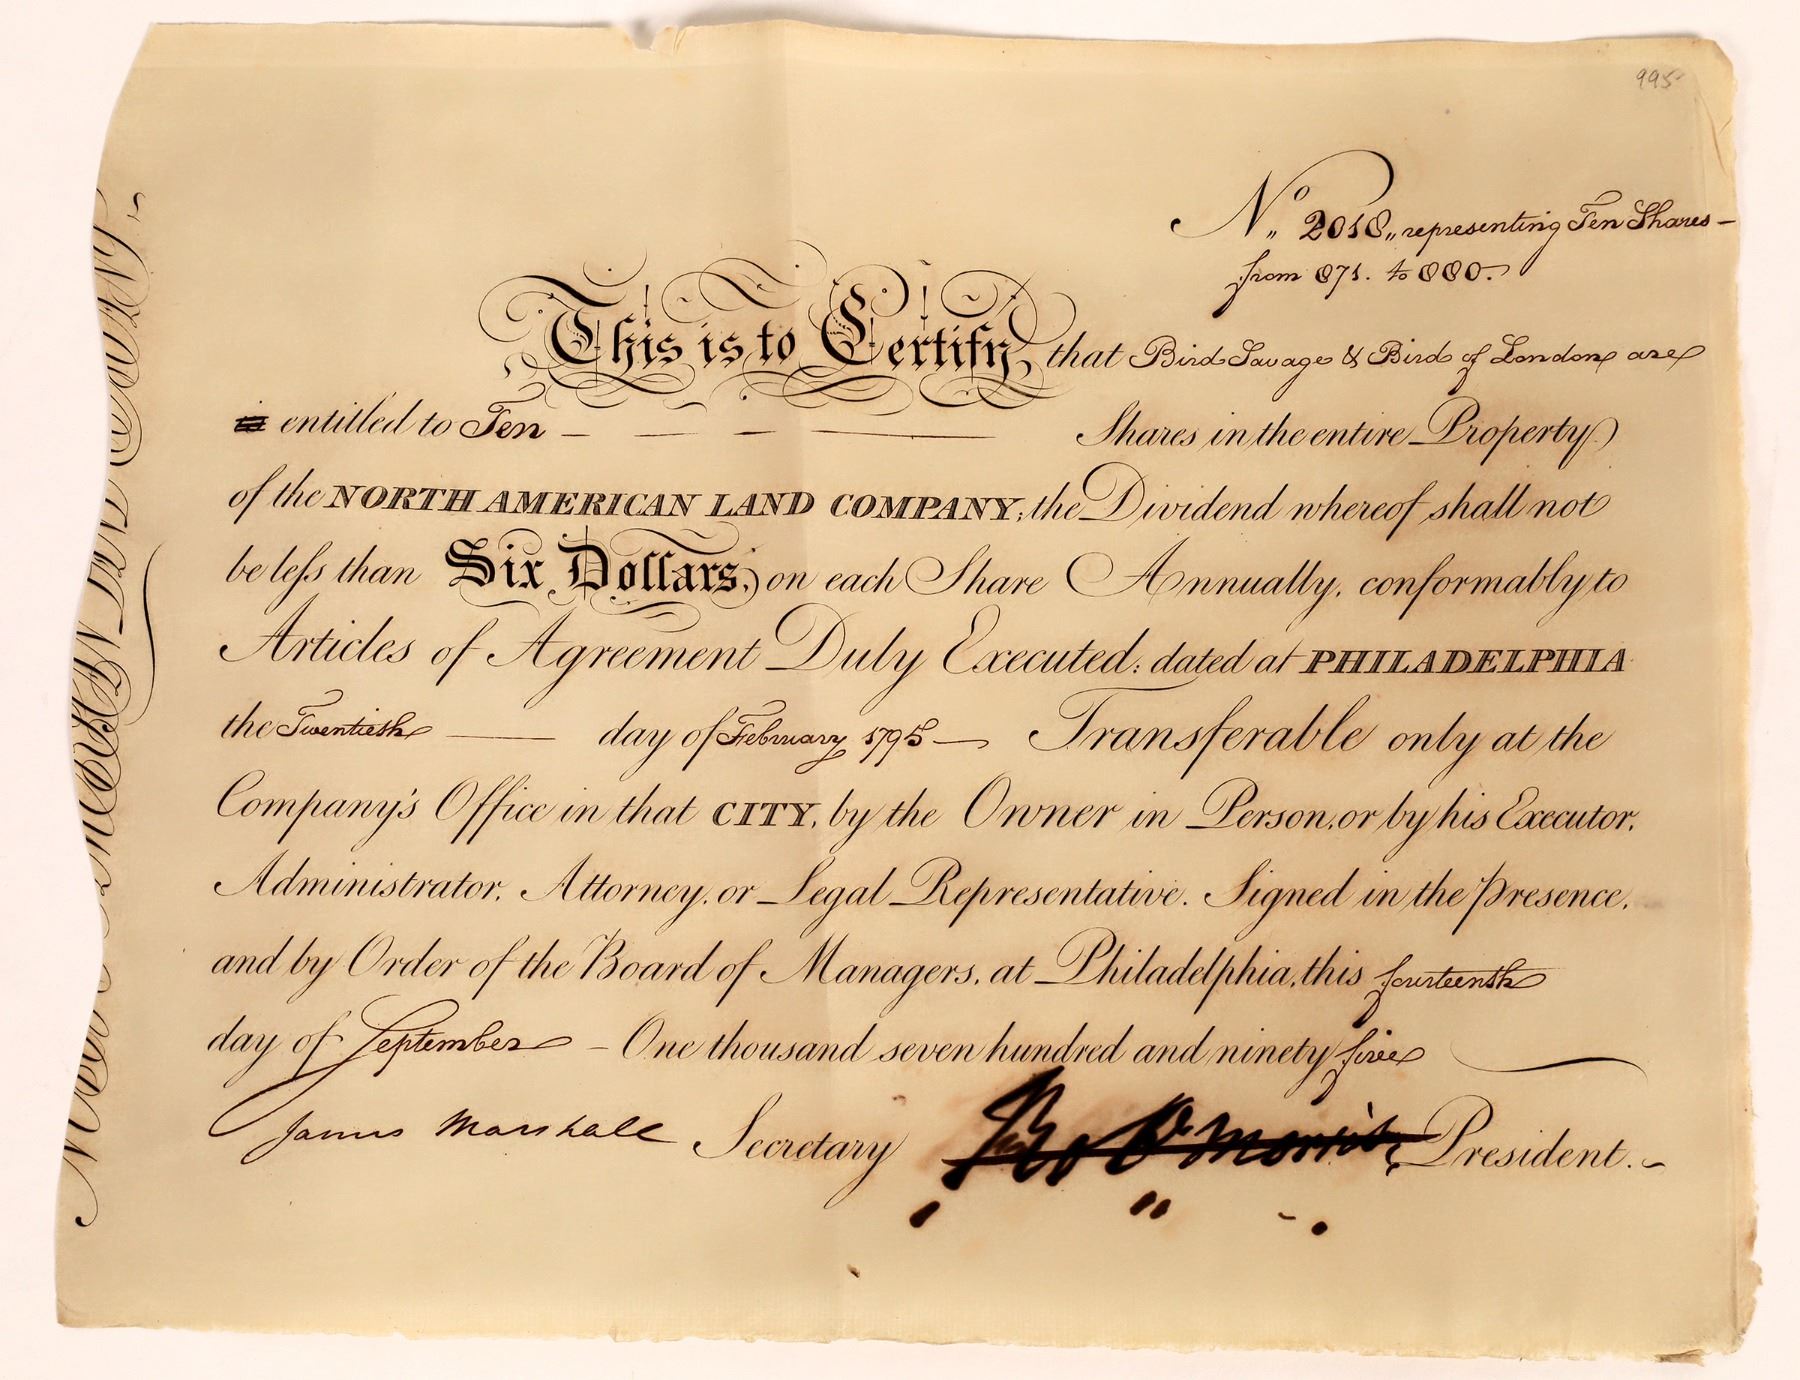 995
No. 2018,, representing Ten Shares —
from 871. to 880.
This is to Certify, that Bird Savage & Bird of London are
is entitled to Ten — — — — Shares in the entire Property
of the NORTH AMERICAN LAND COMPANY; the Dividend whereof shall not
be leſs than Six Dollars, on each Share Annually, conformably to
Articles of Agreement Duly Executed: dated at PHILADELPHIA
the Twentieth — day of February 1795 — Transferable only at the
Company's Office in that CITY, by the Owner in Person, or by his Executor,
Administrator, Attorney, or Legal Representative. Signed in the Presence,
and by Order of the Board of Managers, at Philadelphia, this fourteenth
day of September — One thousand seven hundred and ninety five
James Marshall Secretary Rob Morris President.